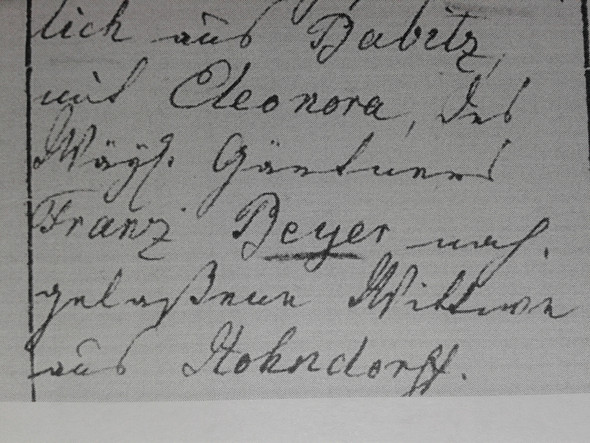 lich aus Babitz,
mit Eleonora, des
Wayl. Gärtners
Franz Beyer nach.
gelaßene Wittwe
aus Hohndorff.